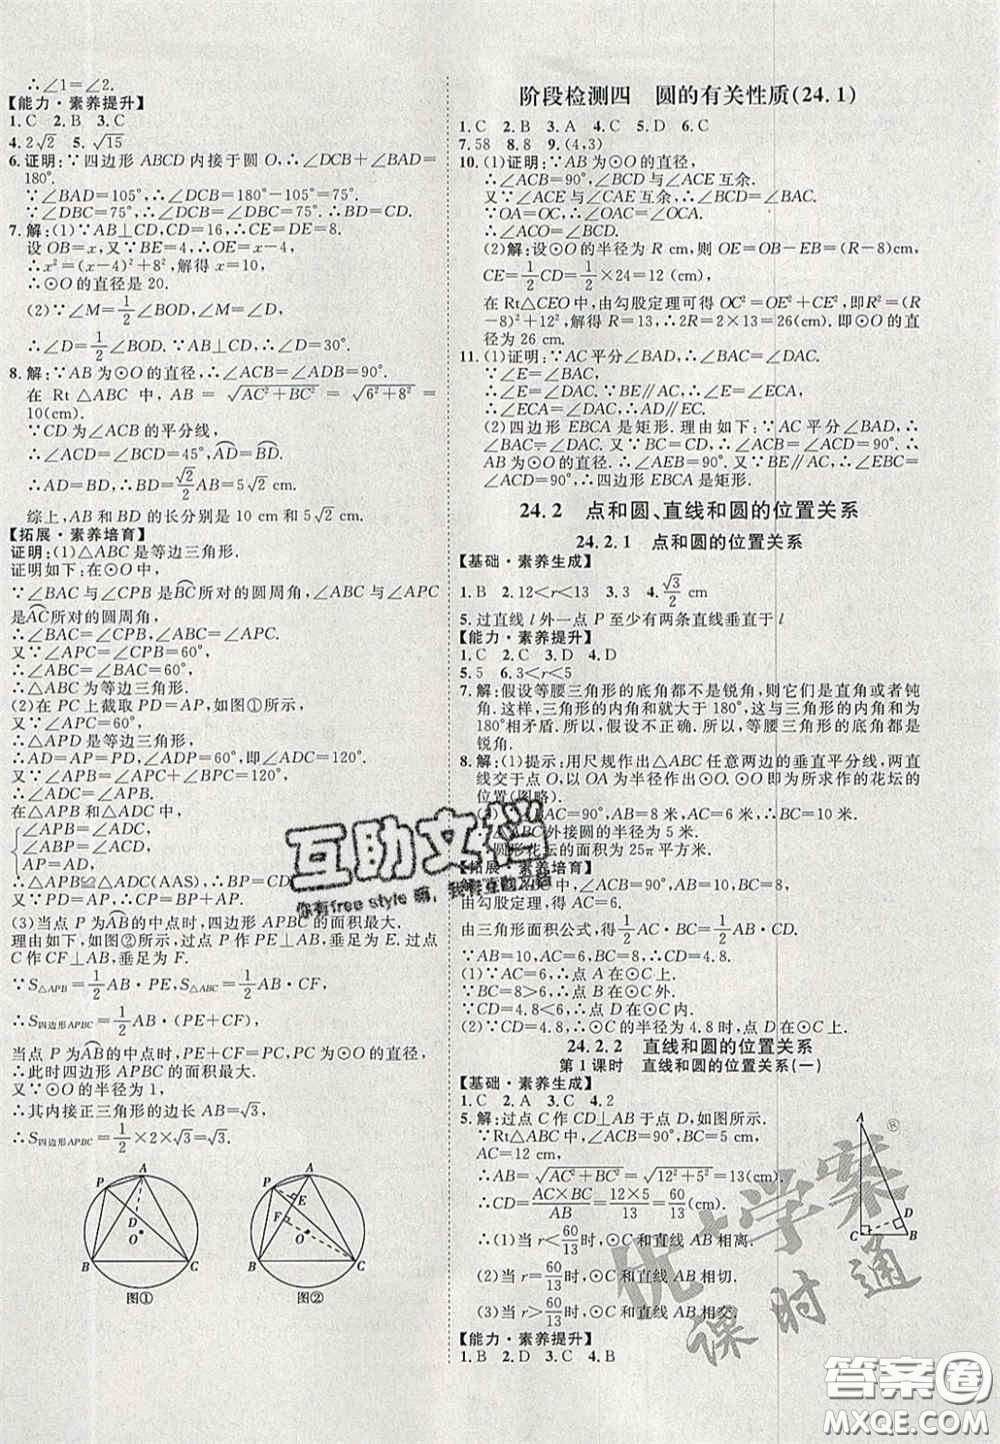 ∴∠1=∠2.
【能力·素养提升】
1.C 2.B 3.C
4.2√2 5.√15
6.证明:∵四边形 ABCD 内接于圆 O,∴∠DCB+∠BAD=
180°.
∵∠BAD=105°,∴∠DCB=180°-105°=75°.
∵∠DBC=75°,∴∠DCB=∠DBC,∴BD=CD.
7.解:(1)∵AB⊥CD,CD=16,∴CE=DE=8.
设 OB=x,又∵BE=4,∴OE=x-4.
∴x²=(x-4)²+8²,解得 x=10.
∴⊙O 的直径是 20.
(2)∵∠M=1/2∠BOD,∠M=∠D,
∴∠D=1/2∠BOD.∵AB⊥CD,∴∠D=30°.
8.解:∵AB 为⊙O 的直径,∴∠ACB=∠ADB=90°.
在 Rt △ABC 中,AB = √(AC²+BC²) = √(6²+8²) =
10(cm).
∵CD 为∠ACB 的平分线,
∴∠ACD=∠BCD=45°,∴AD=BD.
∴AD=BD=√2/2 AB=5√2 cm.
综上,AB 和 BD 的长分别是 10 cm 和 5√2 cm.
【拓展·素养培育】
证明:(1)△ABC 是等边三角形.
证明如下:在⊙O 中,
∵∠BAC 与∠CPB 是BC所对的圆周角,∠ABC 与∠APC
是AC所对的圆周角,
∴∠BAC=∠CPB,∠ABC=∠APC.
又∵∠APC=∠CPB=60°,
∴∠ABC=∠BAC=60°,
∴△ABC 为等边三角形.
(2)在 PC 上截取 PD=AP,如图①所示,
又∵∠APC=60°,
∴△APD 是等边三角形,
∴AD=AP=PD,∠ADP=60°,即∠ADC=120°.
又∵∠APB=∠APC+∠BPC=120°,
∴∠ADC=∠APB.
在△APB 和△ADC 中,
∠APB=∠ADC,
∠ABP=∠ACD,
AP=AD,
∴△APB≌△ADC(AAS),∴BP=CD
又∵PD=AP,∴CP=BP+AP.
(3)当点 P 为AB的中点时,四边形 APBC 的面积最大.
理由如下,如图②所示,过点 P 作 PE⊥AB,垂足为 E.过点
C 作 CF⊥AB,垂足为 F.
∵S△APB=1/2AB·PE,S△ABC=1/2AB·CF,
∴S四边形APBC=1/2AB·(PE+CF),
当点 P 为AB的中点时,PE+CF=PC,PC 为⊙O 的直径,
∴此时四边形 APBC 的面积最大.
又∵⊙O 的半径为 1,
∴其内接正三角形的边长 AB=√3,
∴S四边形APBC=1/2×2×√3=√3.
A P D O B C 图①
A P E F O B C 图②
阶段检测四 圆的有关性质(24.1)
1.C 2.B 3.A 4.C 5.D 6.C
7.58 8.8 9.(4,3)
10.(1)证明:∵AB 为⊙O 的直径,
∴∠ACB=90°,∴∠ACO 与∠ACE 互余.
又∵∠ACE 与∠CAE 互余,∴∠BCO=∠CAE.
∵OA=OC,∴∠OAC=∠OCA.
∴∠ACO=∠BCD.
(2)解:设⊙O 的半径为 R cm,则 OE=OB-EB=(R-8)cm,
CE=1/2CD=1/2×24=12(cm),
在 Rt△CEO 中,由勾股定理可得 OC²=OE²+CE²,即R²=(R
-8)²+12²,解得 R=13,∴2R=2×13=26(cm).即⊙O 的直
径为 26 cm.
11.(1)证明:∵AC 平分∠BAD,∴∠BAC=∠DAC.
∵∠E=∠BAC,
∴∠E=∠DAC,∵BE∥AC,∴∠E=∠ECA,
∴∠ECA=∠DAC,∴EC∥AD.
(2)四边形 EBCA 是矩形.理由如下:∵AC 平分∠BAD,∴
∠BAC=∠DAC=45°.又∵BE∥AC,∴∠ABE=∠BAC=
45°.又∵∠AEB=90°,∴∠BAE=45°,∴∠EAC=∠EBC=
∠ACB=90°,∴四边形 EBCA 是矩形.
24.2 点和圆、直线和圆的位置关系
24.2.1 点和圆的位置关系
【基础·素养生成】
1.B 2.12<r<13 3.3 4.√3/2 cm
5.过直线 l 外一点 P 至少有两条直线垂直于 l
【能力·素养提升】
1.C 2.C 3.A 4.D
5.5 6.3<r<5
7.解:假设等腰三角形的底角都不是锐角,则它们是直角或者钝
角.这样,三角形的内角和就大于 180°,这与三角形的内角和为
180°相矛盾.所以,假设不正确.所以,等腰三角形的底角都是
锐角.
8.解:(1)提示:用尺规作出△ABC 任意两边的垂直平分线,两直
线交于点 O,以 OA 为半径作出⊙O.⊙O 即为所求作的花坛的
位置(图略).
(2)∵∠BAC=90°,AB=8 米,AC=6 米,∴BC=10 米.
∴△ABC 外接圆的半径为 5 米.
∴圆形花坛的面积为 25π 平方米.
【拓展·素养培育】
由勾股定理,得 AB=√(AC²+BC²)=10.
由三角形面积公式,得1/2CD·AB=1/2AC·BC.
∵AB=10,∴CD=4.8.
(1)∵AC=6,∴点 A 在⊙C 上.
∵BC=8>6,∴点 B 在⊙C 外.
∵CD=4.8<6,∴点 D 在⊙C 内.
(2)∵CD=4.8,∴⊙C 的半径为 4.8 时,点 D 在⊙C 上.
24.2.2 直线和圆的位置关系
第 1 课时 直线和圆的位置关系(一)
【基础·素养生成】
1.B 2.D 3.C 4.2
5.解:过点 C 作 CD⊥AB 于点 D,如图所示.
∵Rt△ABC 中,∠ACB=90°,BC=5 cm,
AC=12 cm,
∴AB=√(AC²+BC²)=√(12²+5²)=13(cm).
∴CD=AC×BC/AB=12×5/13=60/13(cm).
(1)当 r<60/13时,⊙C 和直线 AB 相离.
(2)当 r=60/13时,⊙C 和直线 AB 相切.
(3)当 r>60/13时,⊙C 和直线 AB 相交.
A D C B
【能力·素养提升】
1.B 2.D 3.C 4.B
互助文档
你有free style 嘛,我有互助文档
优+学案
®
课时通
答案圈
MXQE.COM